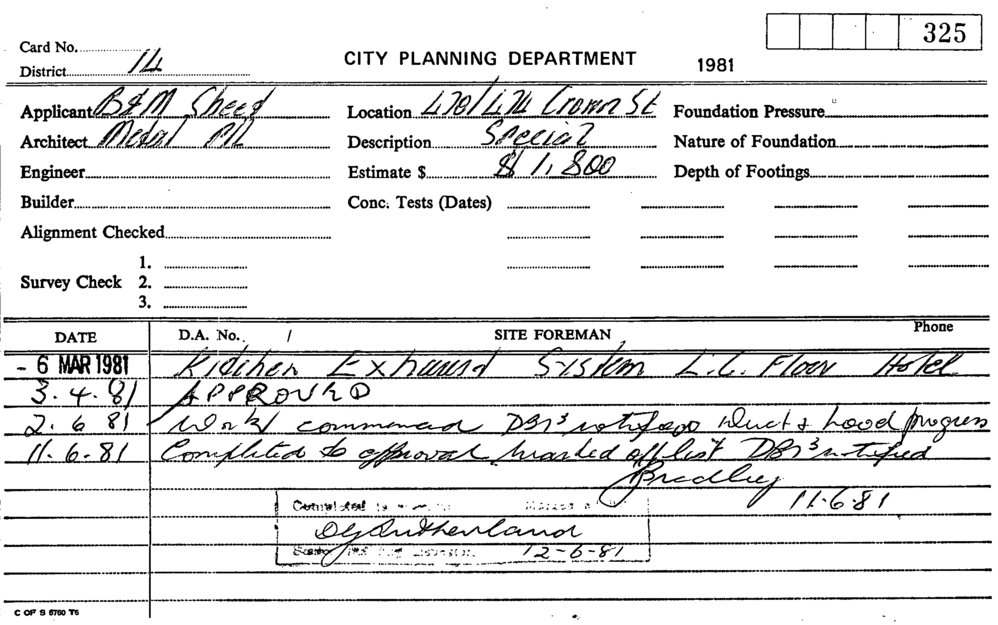 325
Card No.
CITY PLANNING DEPARTMENT 1981
District 14
Applicant B&M Sheet Location 470/474 Crown St Foundation Pressure
Architect Metal P/L Description Special Nature of Foundation
Engineer Estimate $ $ 1,800 Depth of Footings
Builder Conc. Tests (Dates)
Alignment Checked
1.
Survey Check 2.
3.
DATE D.A. No. / SITE FOREMAN Phone
- 6 MAR 1981 Kitchen Exhaust System Floor Hotel
3. 4. 81 APPROVED
2. 6 81 Work commenced duct & hood progress
11. 6. 81 Completed to approval marked off list notified
Bradley 11.6.81
Completed
12-6-81
C OF S 5750 T6